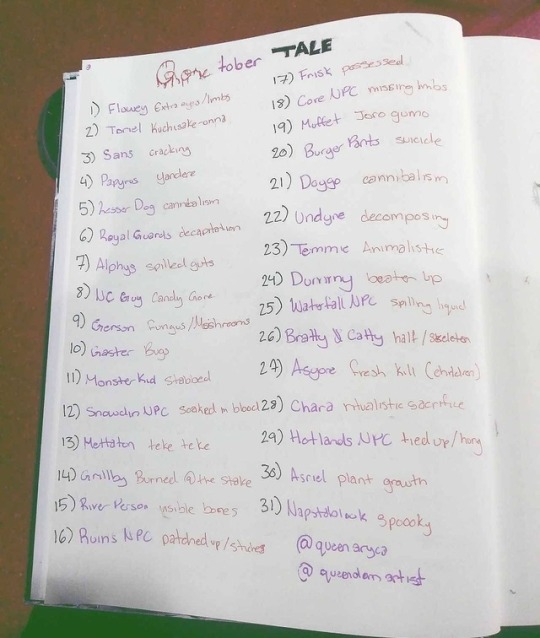 Goretober TALE
1) Flowey Extra eyes/limbs
2) Toriel Kuchisake-onna
3) Sans cracking
4) Papyrus yandere
5) Lesser Dog cannibalism
6) Royal Guards decapitation
7) Alphys spilled guts
8) NC Guy Candy Gore
9) Gerson Fungus/Mushrooms
10) Gaster Bugs
11) Monster Kid stabbed
12) Snowdin NPC soaked in blood
13) Mettaton teke teke
14) Grillby Burned @ the stake
15) River Person visible bones
16) Ruins NPC patched up/stiches
17) Frisk possessed
18) Core NPC missing limbs
19) Muffet Joro gumo
20) Burger Pants suicide
21) Doggo cannibalism
22) Undyne decomposing
23) Temmie Animalistic
24) Dummy beaten up
25) Waterfall NPC spilling liquid
26) Bratty & Catty half/skeleton
27) Asgore fresh kill (children)
28) Chara ritualistic sacrifice
29) Hotlands NPC tied up/hang
30) Asriel plant growth
31) Napstablook spoooky
@queenaryca
@queendemartist